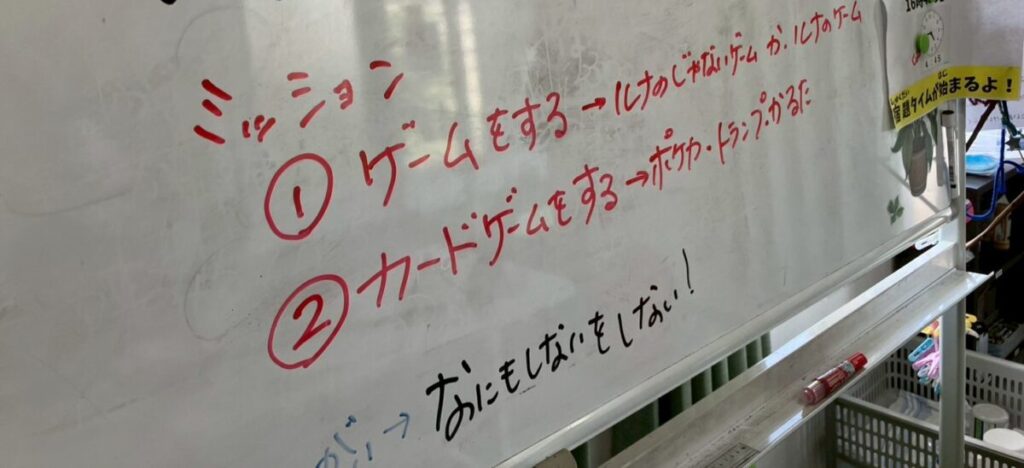 ミッション
① ゲームをする→ルナのじゃないゲームか・ルナのゲーム
② カードゲームをする→ポケカ・トランプ・かるた
が、→なにもしないをしない!
しゅくだい はじ
宿題タイムが始まるよ!